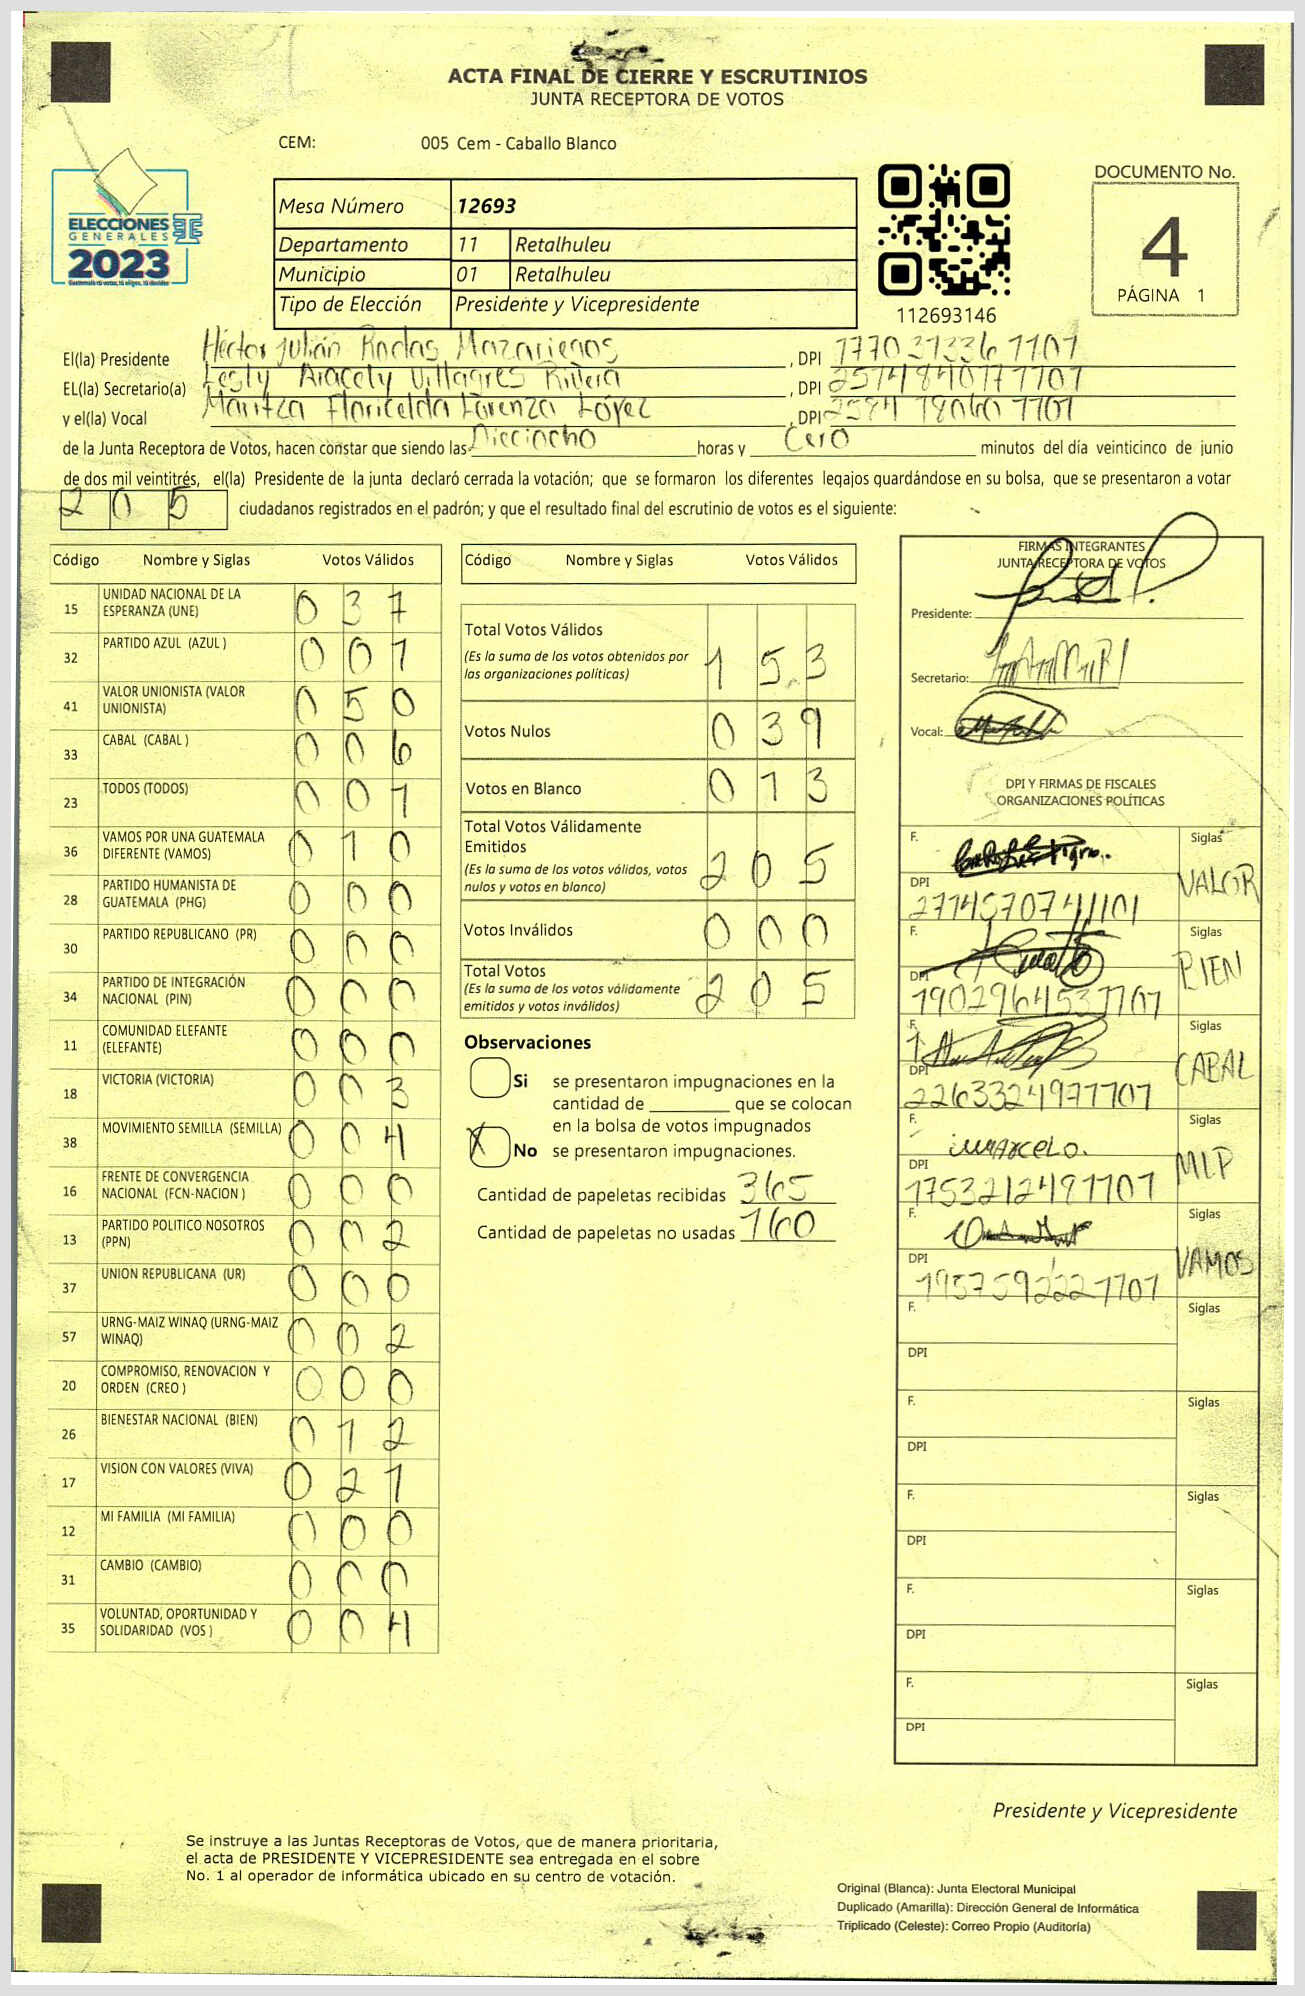 ACTA FINAL DE CIERRE Y ESCRUTINIOS
JUNTA RECEPTORA DE VOTOS
CEM: 005 Cem - Caballo Blanco
ELECCIONES
GENERALES
2023
Mesa Número 12693
Departamento 11 Retalhuleu
Municipio 01 Retalhuleu
Tipo de Elección Presidente y Vicepresidente
112693146
DOCUMENTO No.
4
PÁGINA 1
El(la) Presidente Héctor Julián Rodas Mazariegos , DPI
EL(la) Secretario(a) Lesly Aracely Villagres Rivera , DPI
y el(la) Vocal Maritza Floricelda Lorenzo López , DPI
de la Junta Receptora de Votos, hacen constar que siendo las Dieciocho horas y Cero minutos del día veinticinco de junio
de dos mil veintitrés, el(la) Presidente de la junta declaró cerrada la votación; que se formaron los diferentes legajos guardándose en su bolsa, que se presentaron a votar
205 ciudadanos registrados en el padrón; y que el resultado final del escrutinio de votos es el siguiente:
Código Nombre y Siglas Votos Válidos
15 UNIDAD NACIONAL DE LA ESPERANZA (UNE) 037
32 PARTIDO AZUL (AZUL ) 001
41 VALOR UNIONISTA (VALOR UNIONISTA) 050
33 CABAL (CABAL ) 006
23 TODOS (TODOS) 001
36 VAMOS POR UNA GUATEMALA DIFERENTE (VAMOS) 010
28 PARTIDO HUMANISTA DE GUATEMALA (PHG) 000
30 PARTIDO REPUBLICANO (PR) 000
34 PARTIDO DE INTEGRACIÓN NACIONAL (PIN) 000
11 COMUNIDAD ELEFANTE (ELEFANTE) 000
18 VICTORIA (VICTORIA) 003
38 MOVIMIENTO SEMILLA (SEMILLA) 004
16 FRENTE DE CONVERGENCIA NACIONAL (FCN-NACION ) 000
13 PARTIDO POLITICO NOSOTROS (PPN) 002
37 UNION REPUBLICANA (UR) 000
57 URNG-MAIZ WINAQ (URNG-MAIZ WINAQ) 002
20 COMPROMISO, RENOVACION Y ORDEN (CREO ) 000
26 BIENESTAR NACIONAL (BIEN) 012
17 VISION CON VALORES (VIVA) 021
12 MI FAMILIA (MI FAMILIA) 000
31 CAMBIO (CAMBIO) 000
35 VOLUNTAD, OPORTUNIDAD Y SOLIDARIDAD (VOS ) 004
Código Nombre y Siglas Votos Válidos
Total Votos Válidos 153
(Es la suma de los votos obtenidos por
las organizaciones políticas)
Votos Nulos 039
Votos en Blanco 013
Total Votos Válidamente
Emitidos 205
(Es la suma de los votos válidos, votos
nulos y votos en blanco)
Votos Inválidos 000
Total Votos 205
(Es la suma de los votos válidamente
emitidos y votos inválidos)
Observaciones
Si se presentaron impugnaciones en la
cantidad de ________ que se colocan
en la bolsa de votos impugnados
X No se presentaron impugnaciones.
Cantidad de papeletas recibidas 365
Cantidad de papeletas no usadas 160
FIRMAS INTEGRANTES
JUNTA RECEPTORA DE VOTOS
Presidente:
Secretario:
Vocal:
DPI Y FIRMAS DE FISCALES
ORGANIZACIONES POLÍTICAS
F. Siglas
DPI 2774570741101 VALOR
F. Siglas
DPI 1902964531101 BIEN
F. Siglas
DPI 2263324971101 CABAL
F. Marcelo. Siglas
DPI 1753212491101 MLP
F. Siglas
DPI 1957592221101 VAMOS
F. Siglas
DPI
F. Siglas
DPI
F. Siglas
DPI
F. Siglas
DPI
F. Siglas
DPI
Presidente y Vicepresidente
Se instruye a las Juntas Receptoras de Votos, que de manera prioritaria,
el acta de PRESIDENTE Y VICEPRESIDENTE sea entregada en el sobre
No. 1 al operador de informática ubicado en su centro de votación.
Original (Blanca): Junta Electoral Municipal
Duplicado (Amarilla): Dirección General de Informática
Triplicado (Celeste): Correo Propio (Auditoría)